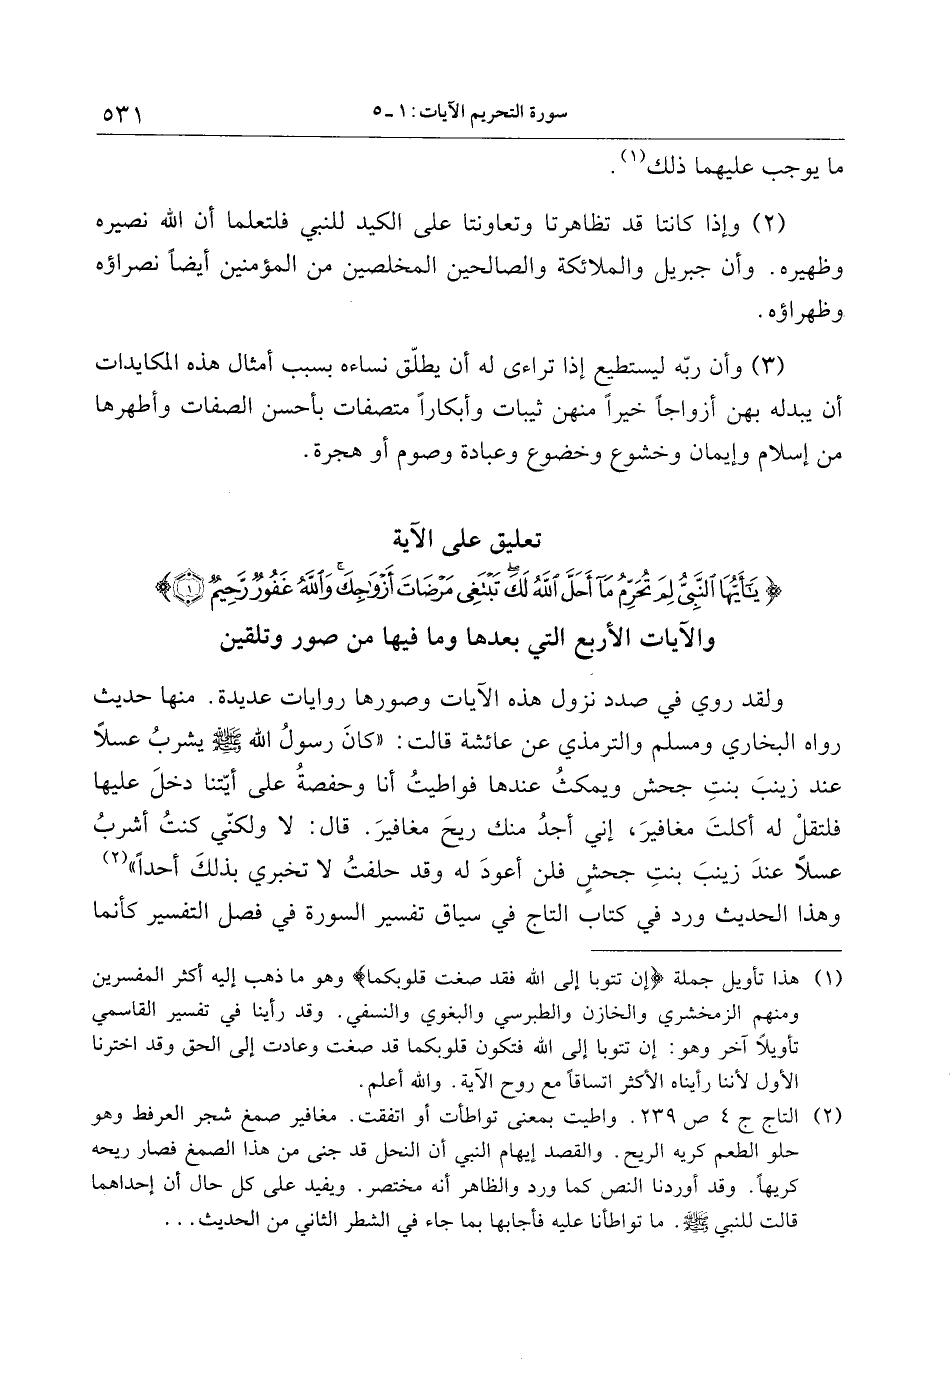 سورة التحريم الآيات: ١ ـ ٥
٥٣١
ما يوجب عليهما ذلك(١).
(٢) وإذا كانتا قد تظاهرتا وتعاونتا على الكيد للنبي فلتعلما أن الله نصيره
وظهيره. وأن جبريل والملائكة والصالحين المخلصين من المؤمنين أيضاً نصراؤه
وظهراؤه.
(٣) وأن ربّه ليستطيع إذا تراءى له أن يطلّق نساءه بسبب أمثال هذه المكايدات
أن يبدله بهن أزواجاً خيراً منهن ثيبات وأبكاراً متصفات بأحسن الصفات وأطهرها
من إسلام وإيمان وخشوع وخضوع وعبادة وصوم أو هجرة.
تعليق على الآية
﴿ يَٰٓأَيُّهَا ٱلنَّبِيُّ لِمَ تُحَرِّمُ مَآ أَحَلَّ ٱللَّهُ لَكَۖ تَبْتَغِى مَرْضَاتَ أَزْوَٰجِكَۚ وَٱللَّهُ غَفُورٌ رَّحِيمٌ ١﴾
والآيات الأربع التي بعدها وما فيها من صور وتلقين
ولقد روي في صدد نزول هذه الآيات وصورها روايات عديدة. منها حديث
رواه البخاري ومسلم والترمذي عن عائشة قالت: «كانَ رسولُ الله ﷺ يشربُ عسلاً
عند زينبَ بنتِ جحش ويمكثُ عندها فواطيتُ أنا وحفصةُ على أيّتنا دخلَ عليها
فلتقلْ له أكلتَ مغافيرَ، إني أجدُ منك ريحَ مغافيرَ. قال: لا ولكنّي كنتُ أشربُ
عسلاً عندَ زينبَ بنتِ جحشٍ فلن أعودَ له وقد حلفتُ لا تخبري بذلكَ أحداً»(٢)
وهذا الحديث ورد في كتاب التاج في سياق تفسير السورة في فصل التفسير كأنما
(١) هذا تأويل جملة ﴿إن تتوبا إلى الله فقد صغت قلوبكما﴾ وهو ما ذهب إليه أكثر المفسرين
ومنهم الزمخشري والخازن والطبرسي والبغوي والنسفي. وقد رأينا في تفسير القاسمي
تأويلاً آخر وهو: إن تتوبا إلى الله فتكون قلوبكما قد صغت وعادت إلى الحق وقد اخترنا
الأول لأننا رأيناه الأكثر اتساقاً مع روح الآية. والله أعلم.
(٢) التاج ج ٤ ص ٢٣٩. واطيت بمعنى تواطأت أو اتفقت. مغافير صمغ شجر العرفط وهو
حلو الطعم كريه الريح. والقصد إيهام النبي أن النحل قد جنى من هذا الصمغ فصار ريحه
كريهاً. وقد أوردنا النص كما ورد والظاهر أنه مختصر. ويفيد على كل حال أن إحداهما
قالت للنبي ﷺ. ما تواطأنا عليه فأجابها بما جاء في الشطر الثاني من الحديث...